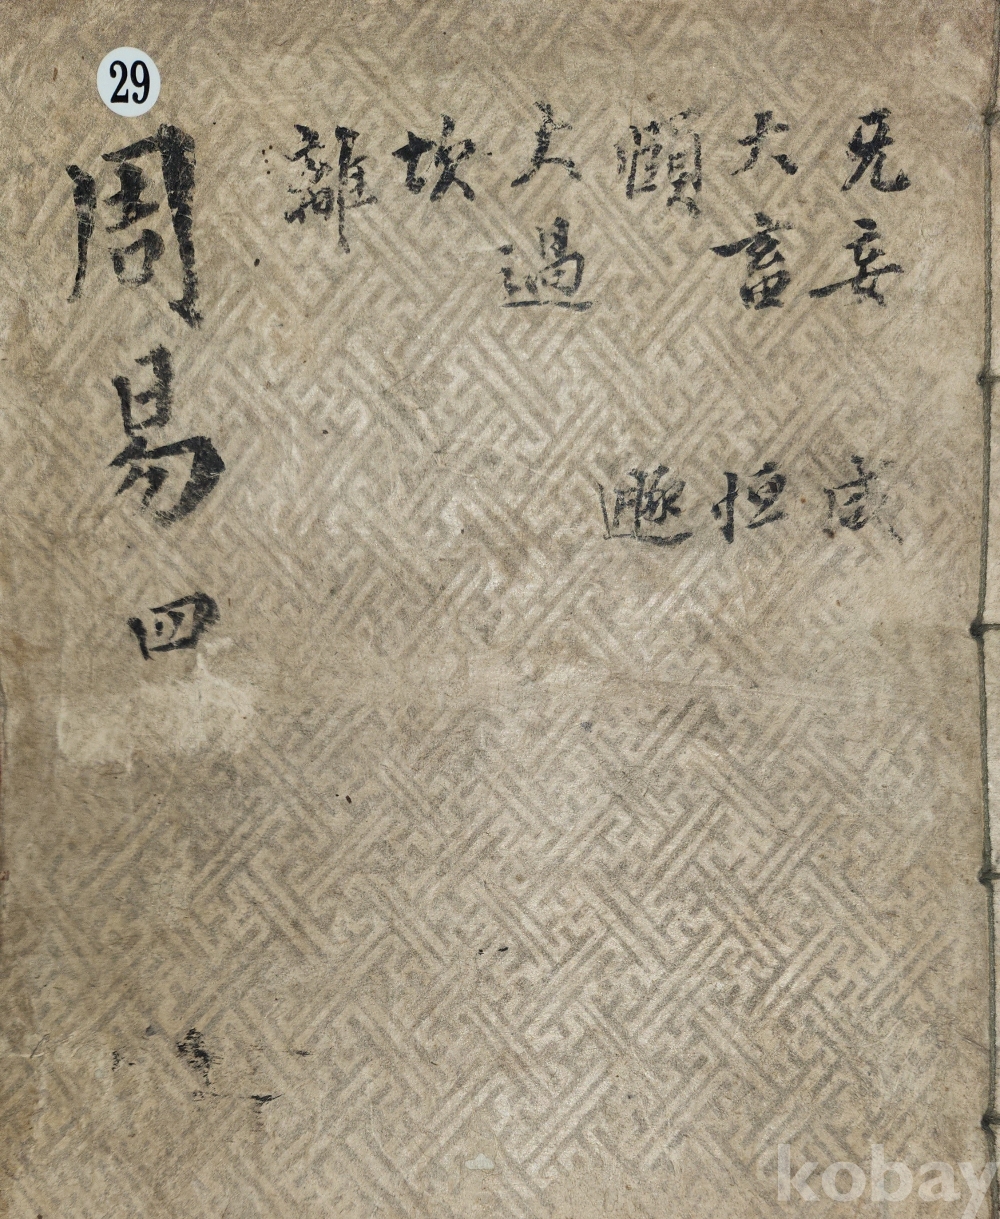 无妄
大畜
頤
大過
坎
離
咸
恒
遯
周易 四
29
kobay